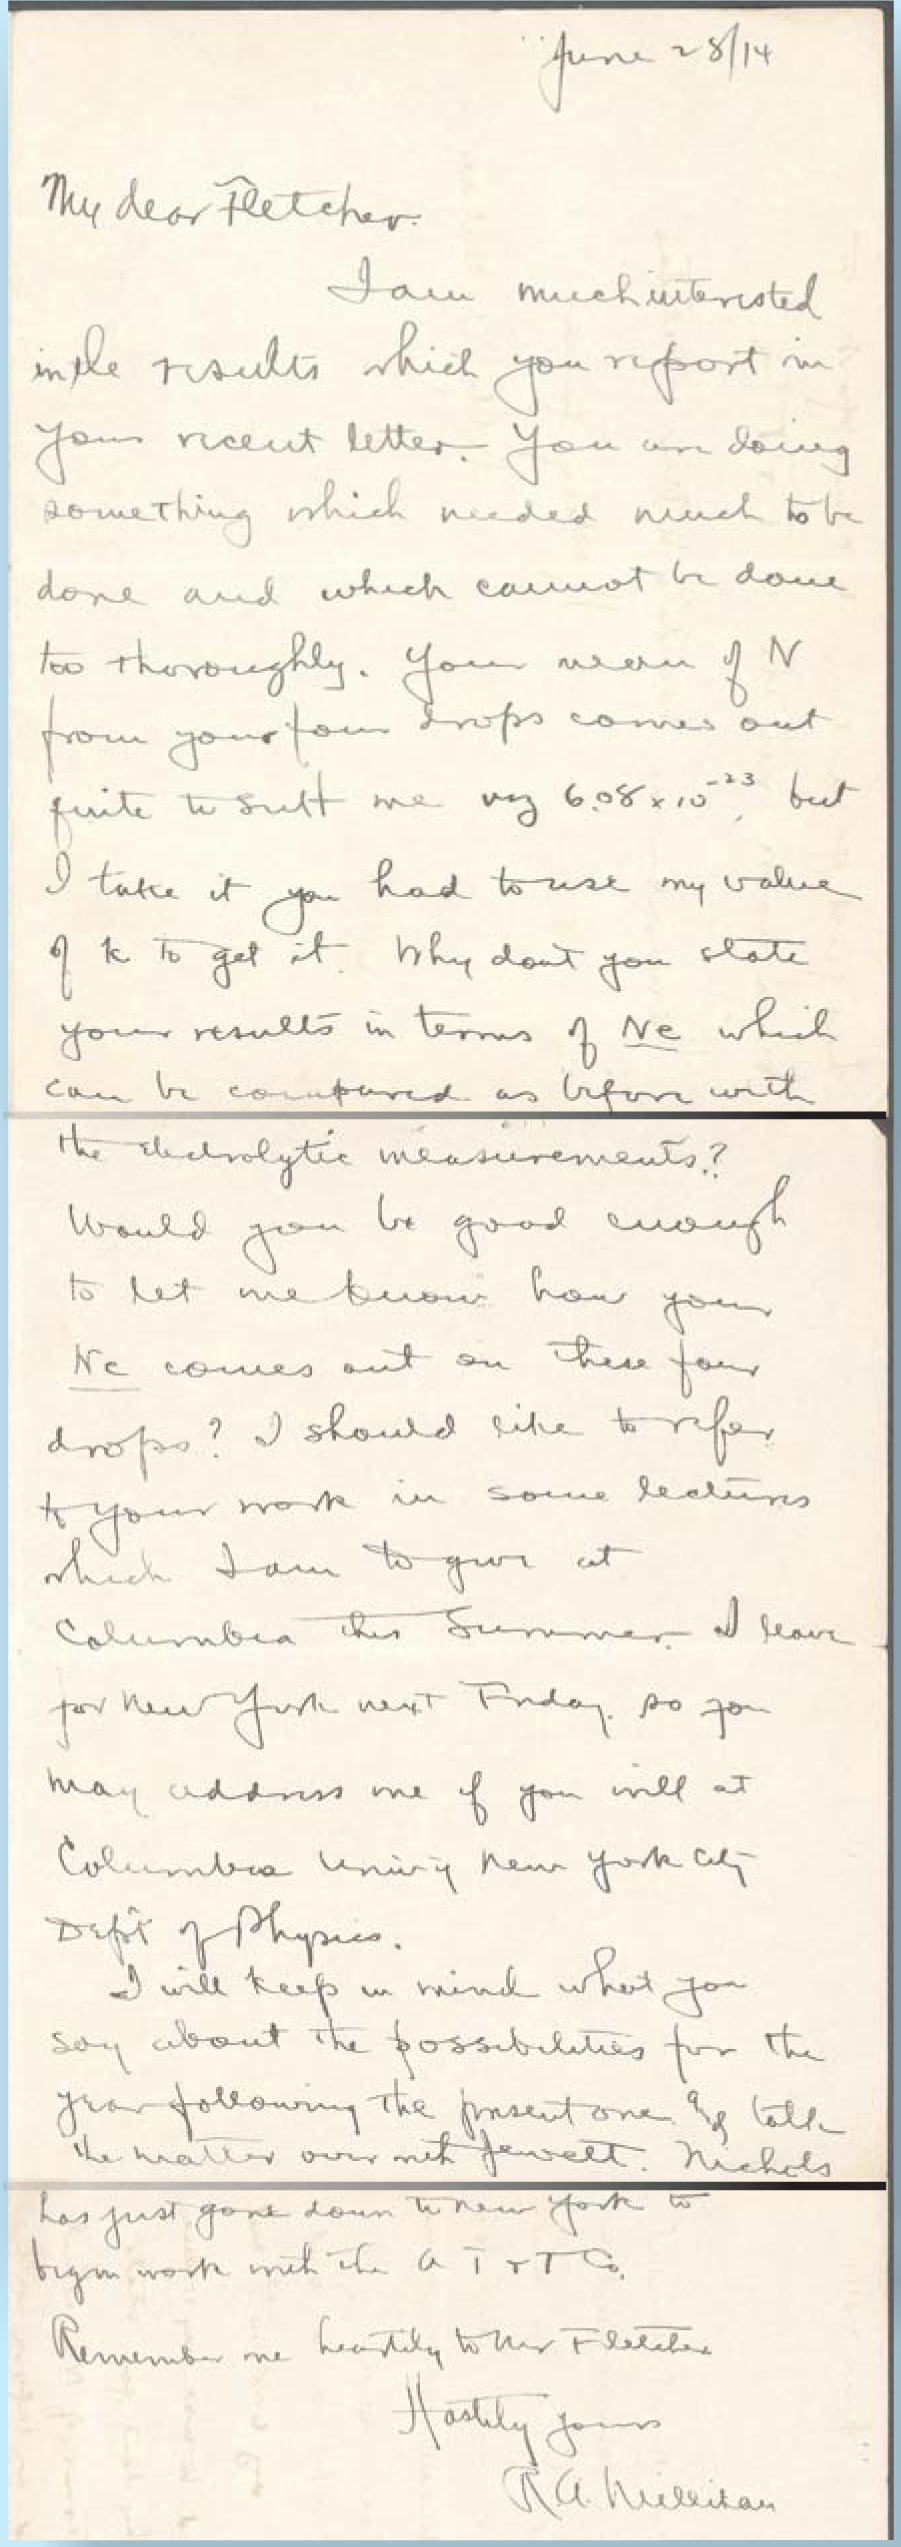 June 28/14
My dear Fletcher.
I am much interested
in the results which you report in
your recent letter. You are doing
something which needed much to be
done and which cannot be done
too thoroughly. Your mean of N
from your four drops comes out
quite to suit me viz 6.08 x 10⁻²³, but
I take it you had to use my value
of k to get it. Why dont you state
your results in terms of Ne which
can be compared as before with
the electrolytic measurements?
Would you be good enough
to let me know how your
Ne comes out on these four
drops? I should like to refer
to your work in some lectures
which I am to give at
Columbia this Summer. I leave
for New York next Friday. so you
may address me if you will at
Columbia Univ'y New York City
Dep't of Physics.
I will keep in mind what you
say about the possibilities for the
year following the present one & talk
the matter over with Jewett. Nichols
has just gone down to New York to
begin work with the A T & T Co.
Remember me heartily to Mrs Fletcher
Hastily yours
R.A. Millikan